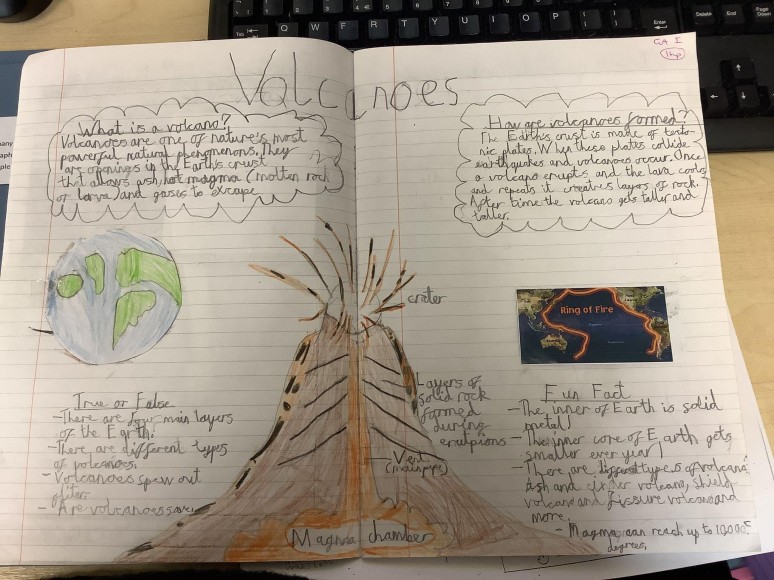 Volcanoes
GA I
1hp
What is a volcano?
Volcanoes are one of nature's most
powerful natural phenomenons. They
are openings in the Earth's crust
that allows ash, hot magma (molten rock
or larva) and gasis to escape
How are volcanoes formed?
The Earth's crust is made of tecto-
nic plates. When these plates collide
earthquakes and volcanoes occur. Once
a volcano erupts and the lava cools
and repeats it creates layers of rock.
After time the volcano gets taller and
taller.
crater
Ring of Fire
Layers of
solid rock
formed
during
eruptions
Vent
(main pipe)
Magma chamber
True or False
- There are four main layers
of the Earth.
- There are different types
of volcanoes.
- Volcanoes spew out
- Are volcanoes
Fun Fact
- The inner of Earth is solid
metal!
- The inner core of Earth gets
smaller ever year!
- There are different types of volcano
Ash and cinder volcano, Shield
volcano and fissure volcano and
more.
- Magma can reach up to
degrees.
Q W E R T Y U I O P
Enter
Delete
End
Page
Down